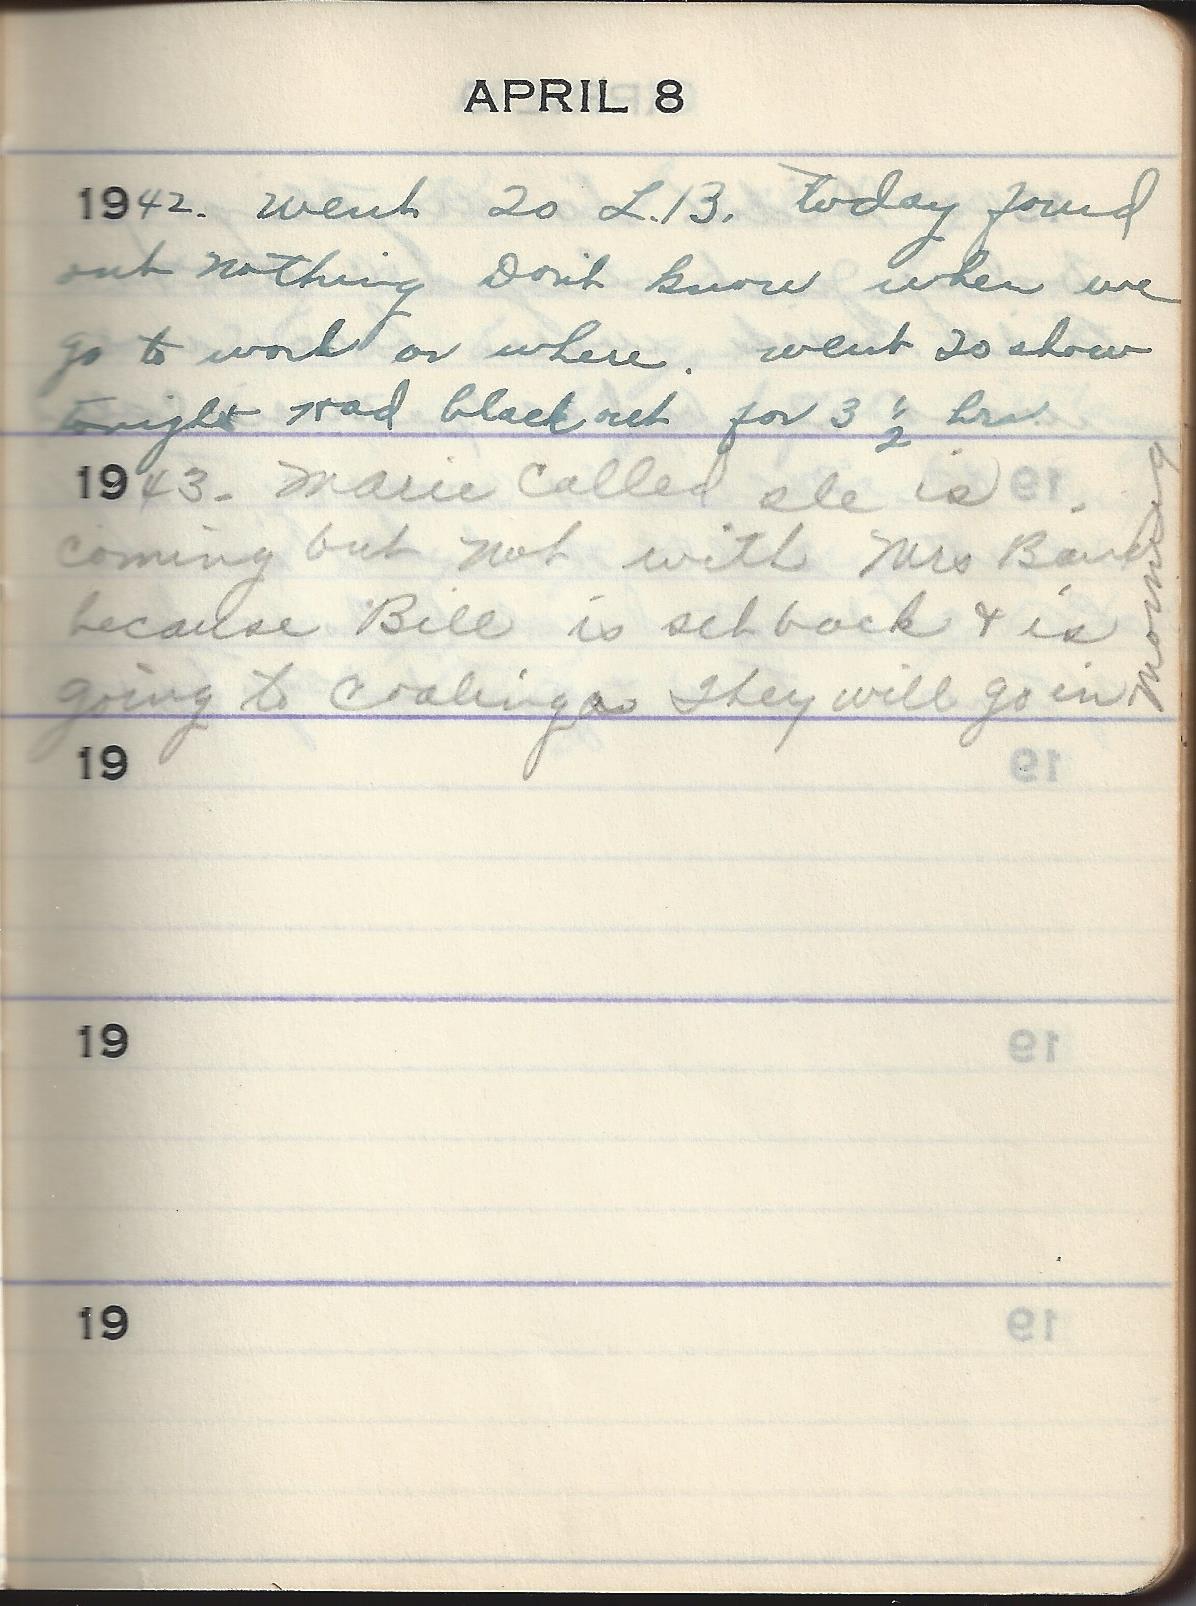 APRIL 8
1942. Went to L.B. Today found
out nothing Don't know when we
go to work or where. Went to show
tonight Had blackout for 3 1/2 hrs.
1943. Marie called she is
coming but not with Mrs
because Bill is set back & is
going to Coalinga They will go in
morning
19
19
19